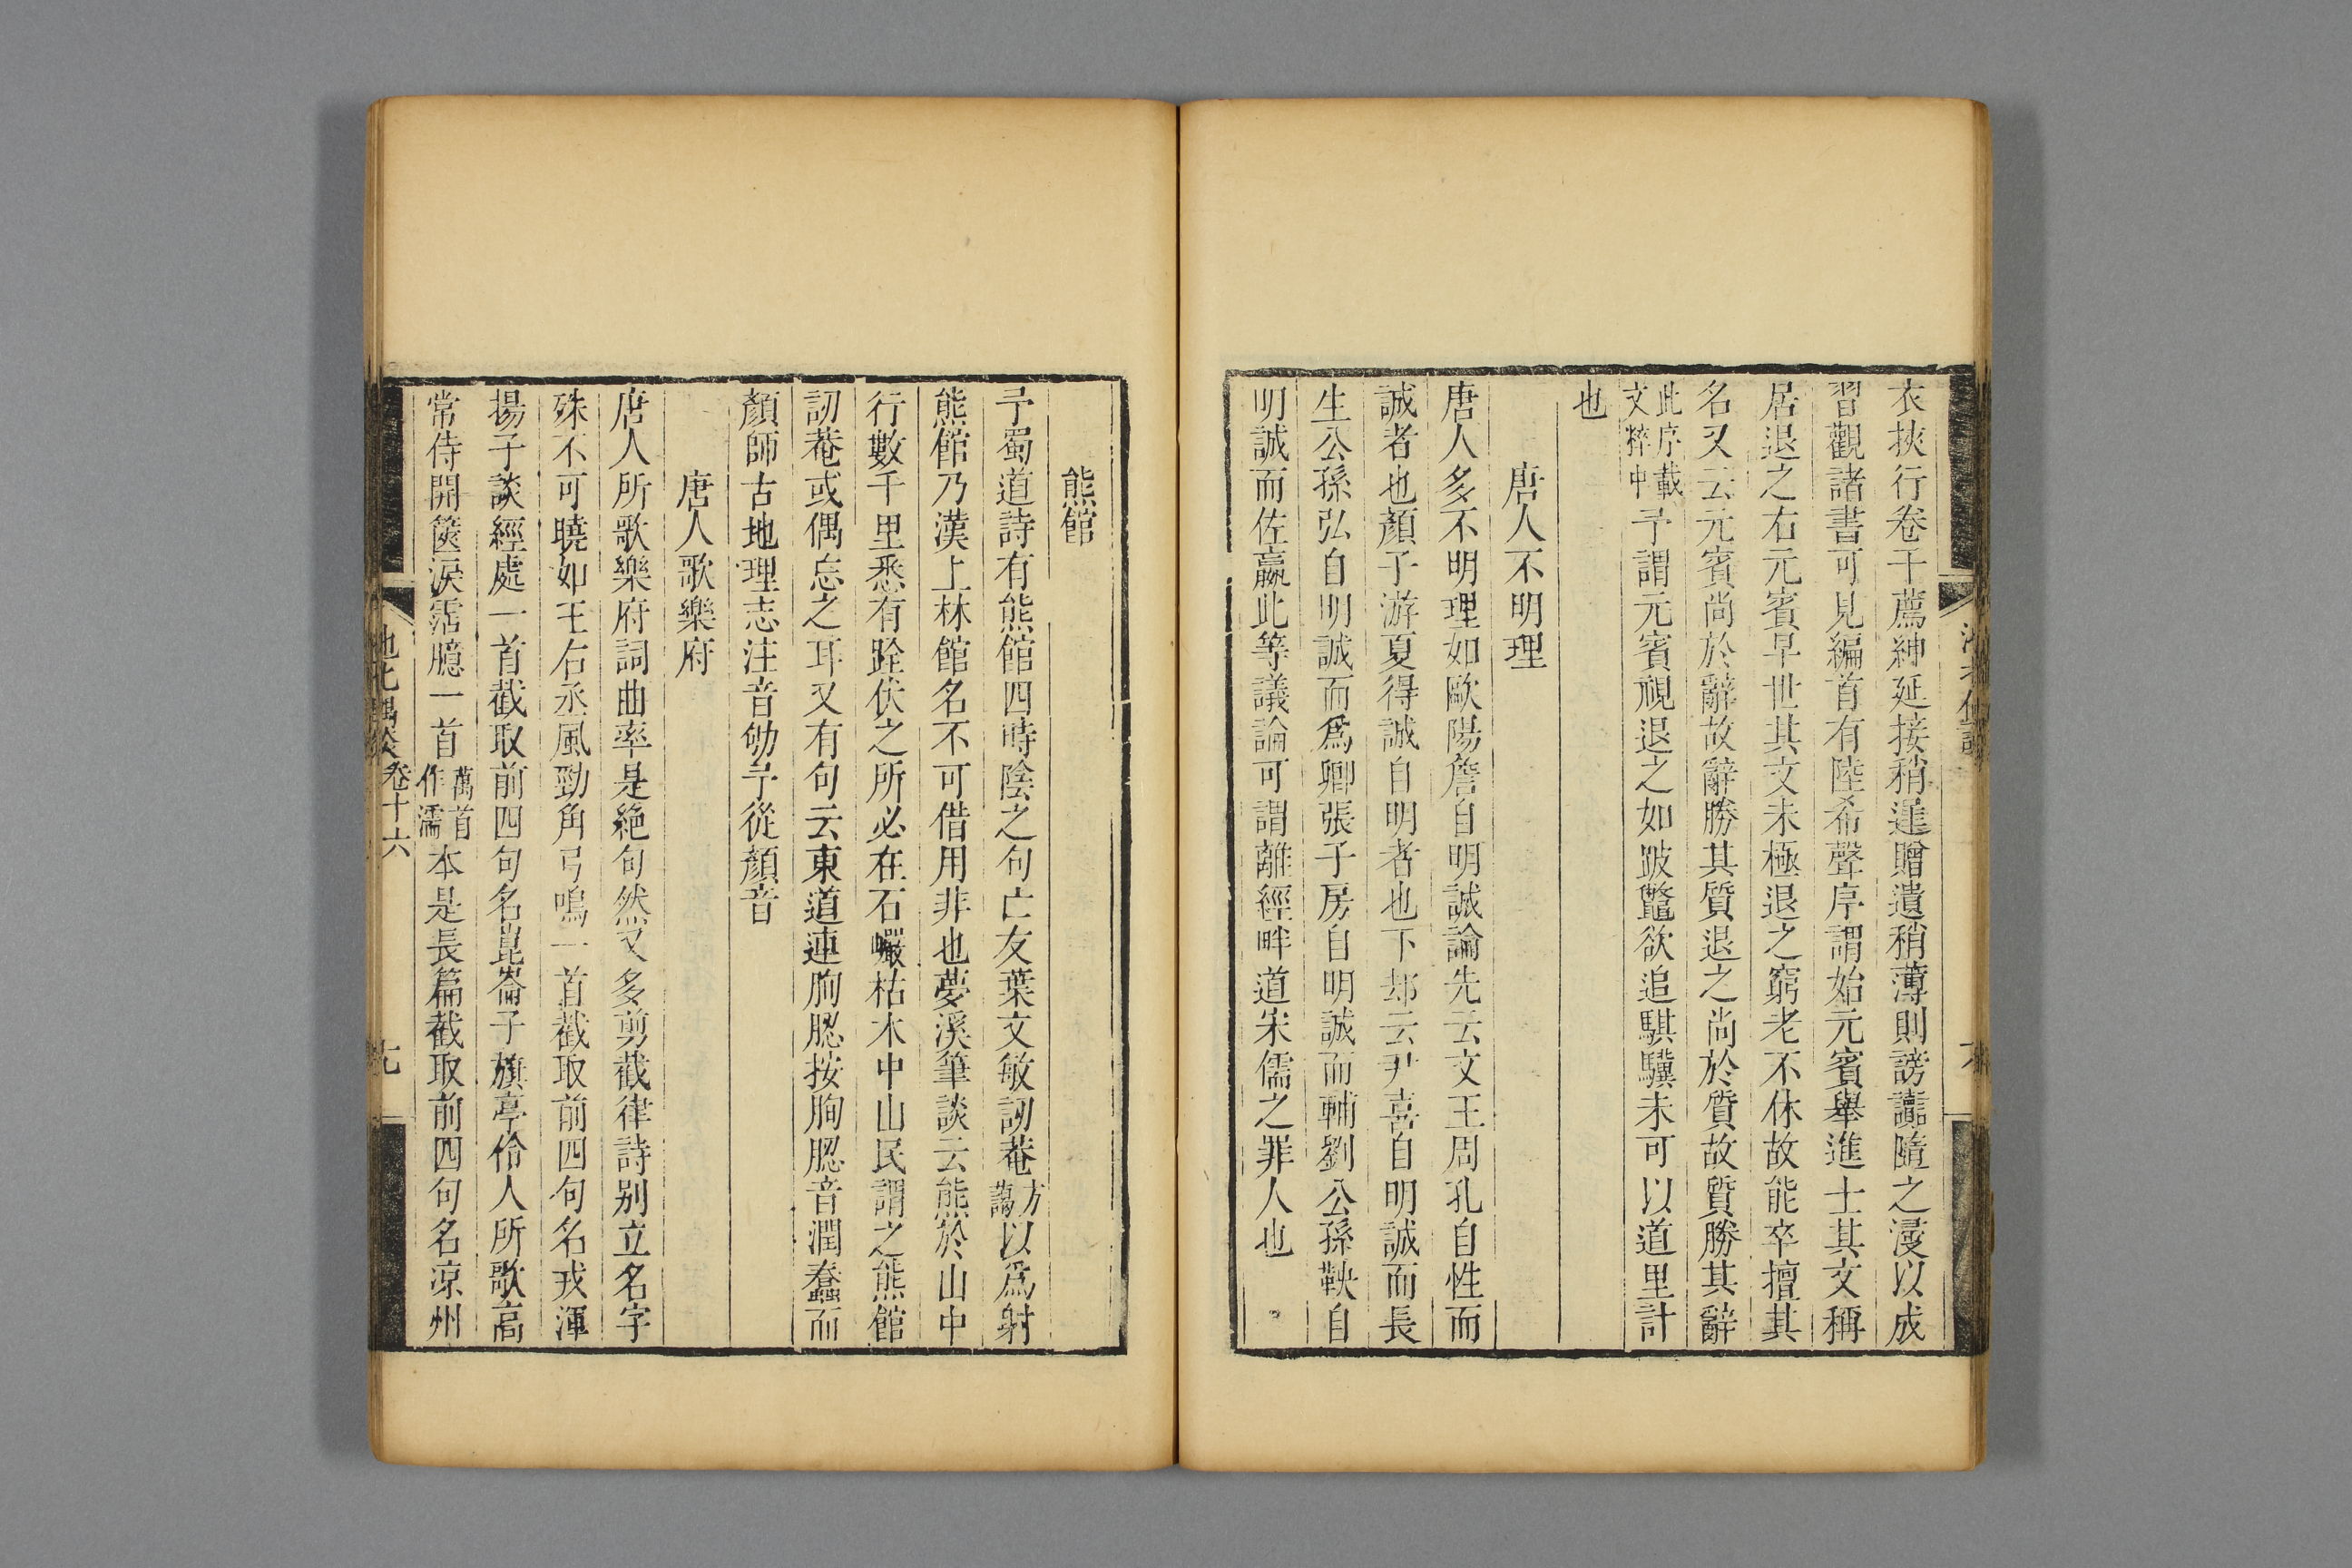 衣挾行卷干薦紳延接稍遲贈遺稍薄則謗讟隨之浸以成
習觀諸書可見編首有陸希聲序謂始元賓舉進士其文稱
居退之右元賓早世其文未極退之窮老不休故能卒擅其
名又云元賓尚於辭故辭勝其質退之尚於質故質勝其辭
此序載文粹中予謂元賓視退之如跛鼈欲追騏驥未可以道里計
也
唐人不明理
唐人多不明理如歐陽詹自明誠論先云文王周孔自性而
誠者也顏子游夏得誠自明者也下却云尹喜自明誠而長
生公孫弘自明誠而爲卿張子房自明誠而輔劉公孫鞅自
明誠而佐嬴此等議論可謂離經畔道宋儒之罪人也
熊館
予蜀道詩有熊館四時陰之句亡友葉文敏訒菴方藹以爲射
熊館乃漢上林館名不可借用非也夢溪筆談云熊於山中
行數千里悉有跧伏之所必在石巖枯木中山民謂之熊館
訒菴或偶忘之耳又有句云東道連朐䏰按朐䏰音潤蠢而
顏師古地理志注音劬予從顏音
唐人歌樂府
唐人所歌樂府詞曲率是絶句然又多剪截律詩别立名字
殊不可曉如王右丞風勁角弓鳴一首截取前四句名戎渾
揚子談經處一首截取前四句名崑崙子旗亭伶人所歌高
常侍開篋淚霑臆一首萬首作濡本是長篇截取前四句名涼州
池北偶談 卷十六